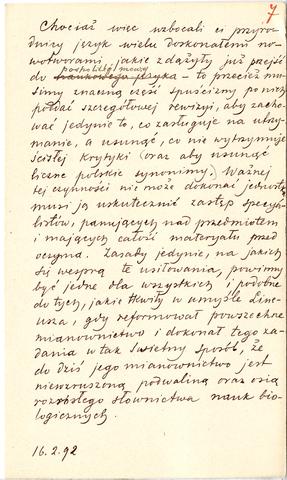 7
Chociaż więc wzbocali ci przyro-
dnicy język wielu doskonałemi no-
wotworami, jakie zdążyły już przejść
pospolitej mowy
do naukowego języka – to przecież mu-
simy znaczną część spuścizny po nich
poddać szczegółowej rewizyi, aby zacho-
wać jedynie to, co zasługuje na utrzy-
manie, a usunąć, co nie wytrzymuje
ścisłej krytyki (oraz aby usunąć
liczne polskie synonimy). Ważnej
tej czynności nie może dokonać jednostka
musi ją uskutecznić zastęp specya-
listów, panujących nad przedmiotem
i mających całość materyału przed
oczyma. Zasady jedynie, na jakich
się wesprą te usiłowania, powinny
być jedne dla wszystkich i podobne
do tych, jakie tkwiły w umyśle Line-
usza, gdy reformował powszechne
mianownictwo i dokonał tego za-
dania w tak świetny sposób, że
do dziś jego mianownictwo jest
niewzruszoną podwaliną oraz osią
rozrosłego słownictwa nauk bio-
logicznych.
16.2.92